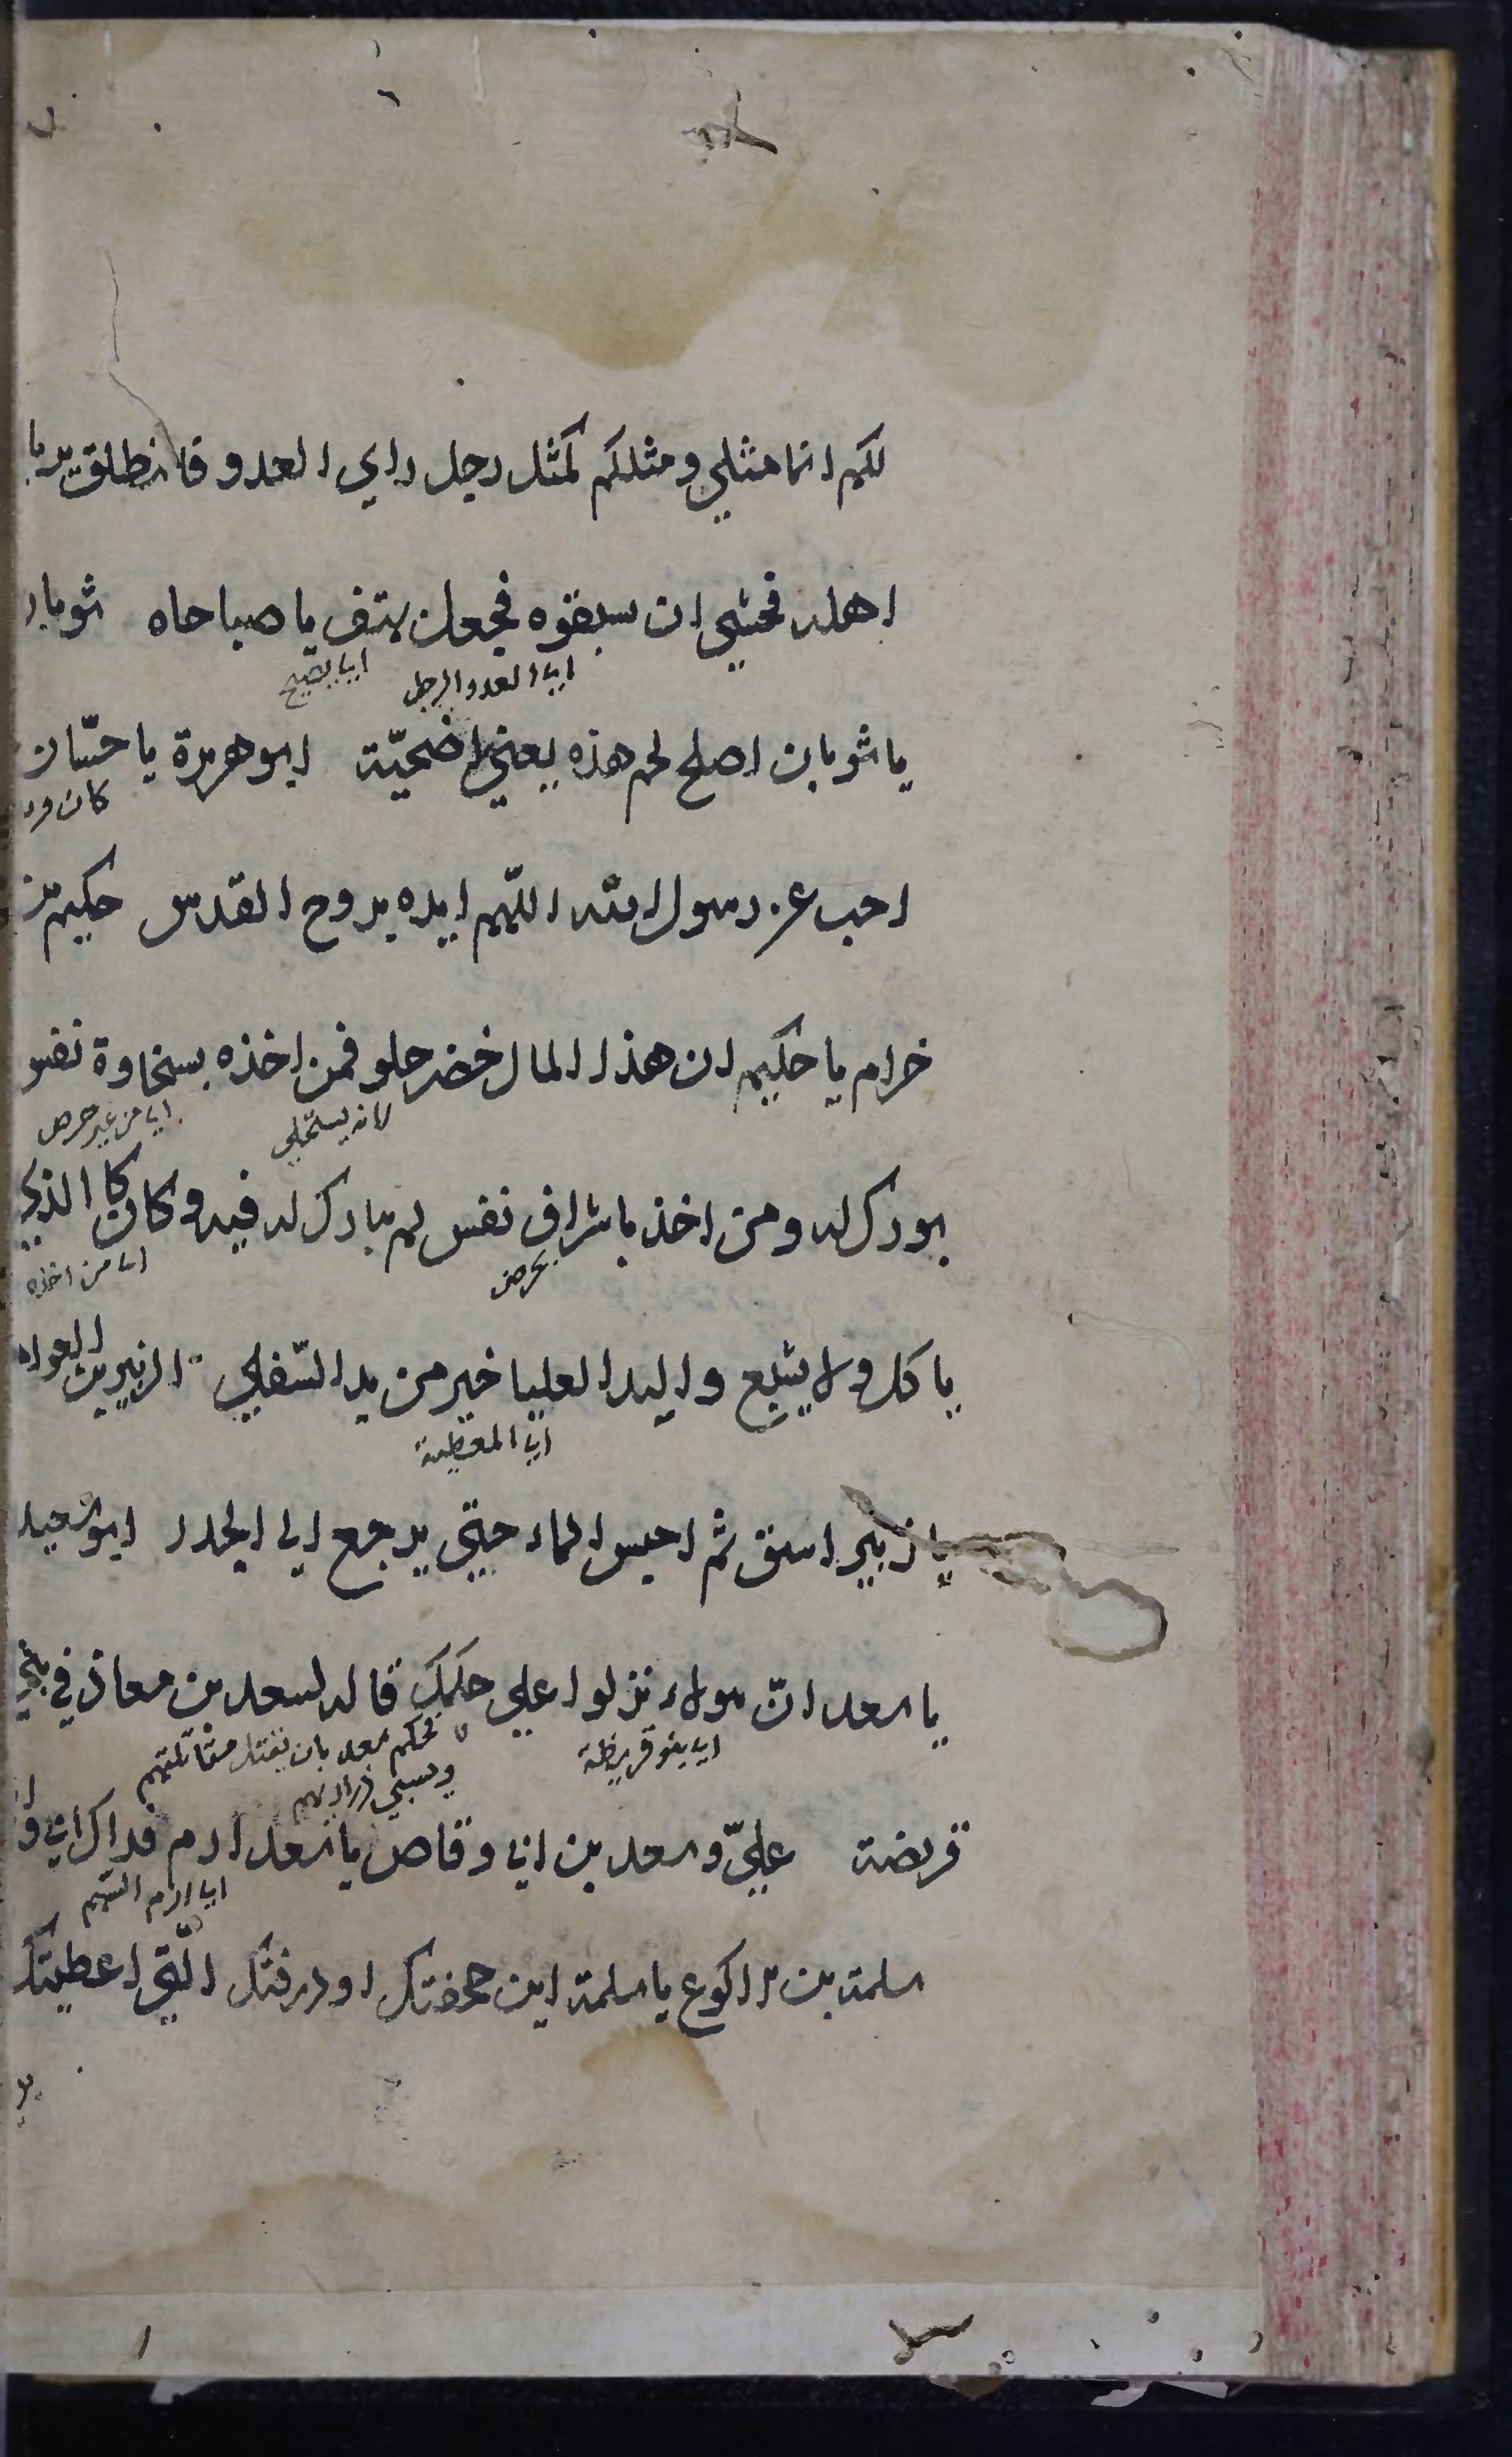 لكم انما مثلي ومثلكم كمثل رجل راي العدو فانطلق يربا
اهله فخشي ان سبقوه فجعل يهتف يا صباحاه ثوبان
اي العدو الرجل اي يصيح
يا ثوبان اصلح لحم هذه يعني اضحيّة ابو هريرة يا حسّان
كان
اجب عن رسول الله اللّهم ايده بروح القدس حكيم بن
خرام يا حكيم ان هذا المال خضر حلو فمن اخذه بسخاوة نفس
لانه يستحلي اي من غير حرص
بورك له ومن اخذ باشراف نفس لم يبارك له فيه وكان كا الذي
بحرص اي من اخذه
ياكل ولا يشبع واليد العليا خير من يد السّفلي الزبير بن العوام
اي المعطية
يا زبير اسق ثم احبس الماء حتي يرجع الي الجدر ابو سعيد
يا سعد انّ هولاء نزلوا علي حكمك قاله لسعد بن معاذ في بني
اي بنو قريظة فحكم سعد بان يقتل مقاتلتهم
ويسبي ذراريهم
قريضة عليّ وسعد بن ابي وقاص يا سعد ارم فداك ابي و
اي ارم السهم
سلمة بن الاكوع يا سلمة اين حجفتك او درقتك الّتي اعطيتك